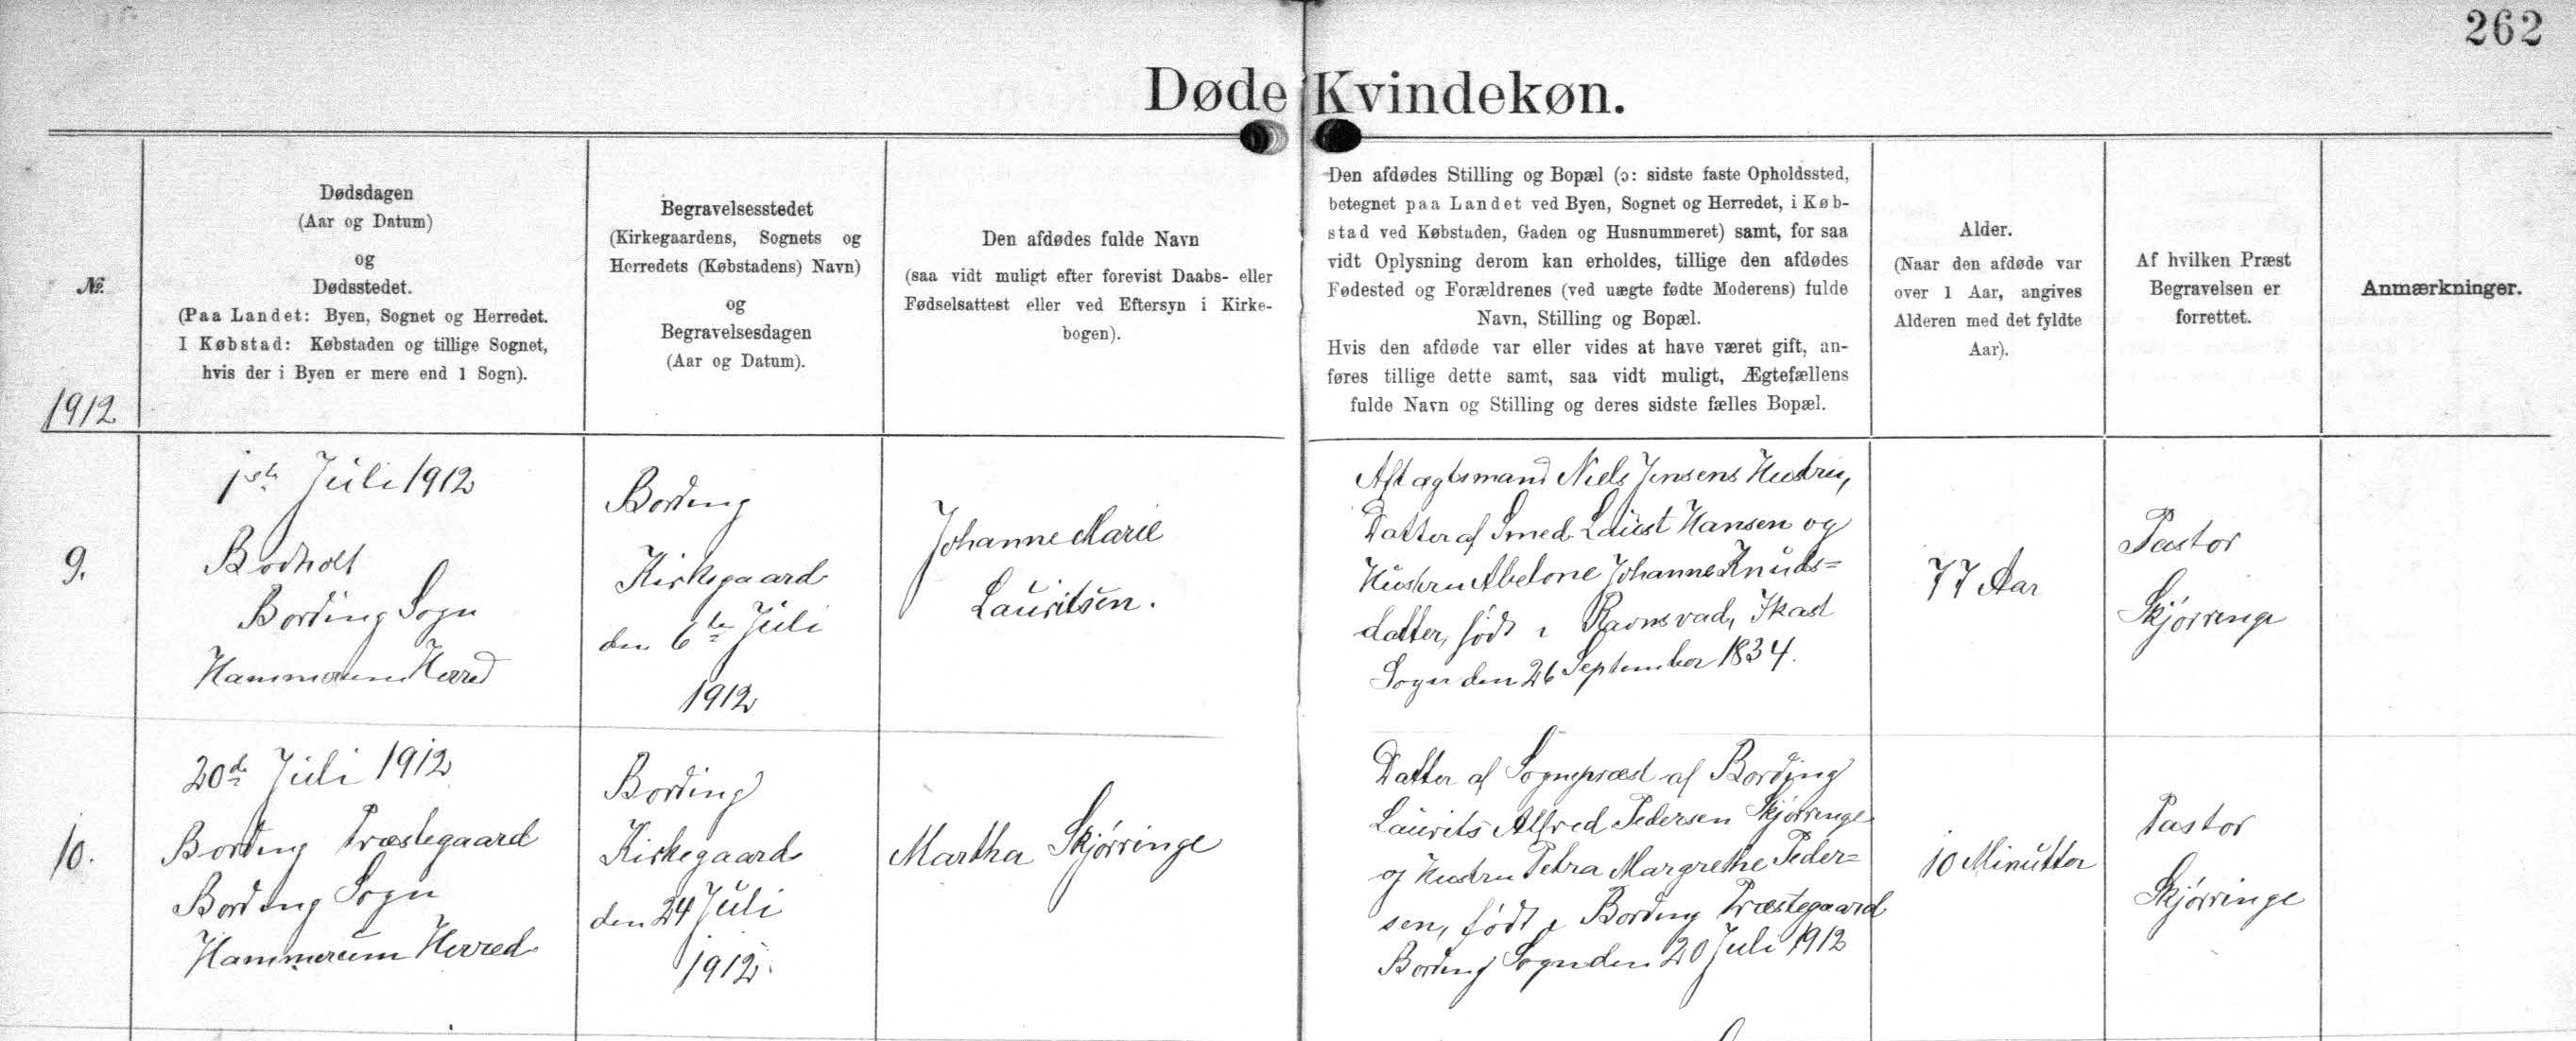 262
Døde Kvindekøn.
№
1912
Dødsdagen
(Aar og Datum)
og
Dødsstedet.
(Paa Landet: Byen, Sognet og Herredet.
I Købstad: Købstaden og tillige Sognet,
hvis der i Byen er mere end 1 Sogn).
Begravelsesstedet
(Kirkegaardens, Sognets og
Herredets (Købstadens) Navn)
og
Begravelsesdagen
(Aar og Datum).
Den afdødes fulde Navn
(saa vidt muligt efter forevist Daabs- eller
Fødselsattest eller ved Eftersyn i Kirke-
bogen).
Den afdødes Stilling og Bopæl (ɔ: sidste faste Opholdssted,
betegnet paa Landet ved Byen, Sognet og Herredet, i Køb-
stad ved Købstaden, Gaden og Husnummeret) samt, for saa
vidt Oplysning derom kan erholdes, tillige den afdødes
Fødested og Forældrenes (ved uægte fødte Moderens) fulde
Navn, Stilling og Bopæl.
Hvis den afdøde var eller vides at have været gift, an-
føres tillige dette samt, saa vidt muligt, Ægtefællens
fulde Navn og Stilling og deres sidste fælles Bopæl.
Alder.
(Naar den afdøde var
over 1 Aar, angives
Alderen med det fyldte
Aar).
Af hvilken Præst
Begravelsen er
forrettet.
Anmærkninger.
9.
1ste Juli 1912
Bodholt
Bording Sogn
Hammerum Herred
Bording
Kirkegaard
den 6te Juli
1912
Johanne Marie
Lauritsen.
Aftægtsmand Niels Jensens Hustru,
Datter af Smed Laust Hansen og
Hustru Abelone Johanne Knuds=
datter, født i Ravnsvad, Ikast
Sogn den 26 September 1834.
77 Aar
Pastor
Skjørringe
10.
20de Juli 1912
Bording Præstegaard
Bording Sogn
Hammerum Herred
Bording
Kirkegaard
den 24 Juli
1912.
Martha Skjørringe
Datter af Sognepræst af Bording
Laurits Alfred Pedersen Skjørringe
og Hustru Petra Margrethe Peder=
sen, født i Bording Præstegaard
Bording Sogn den 20 Juli 1912
10 Minutter
Pastor
Skjørringe